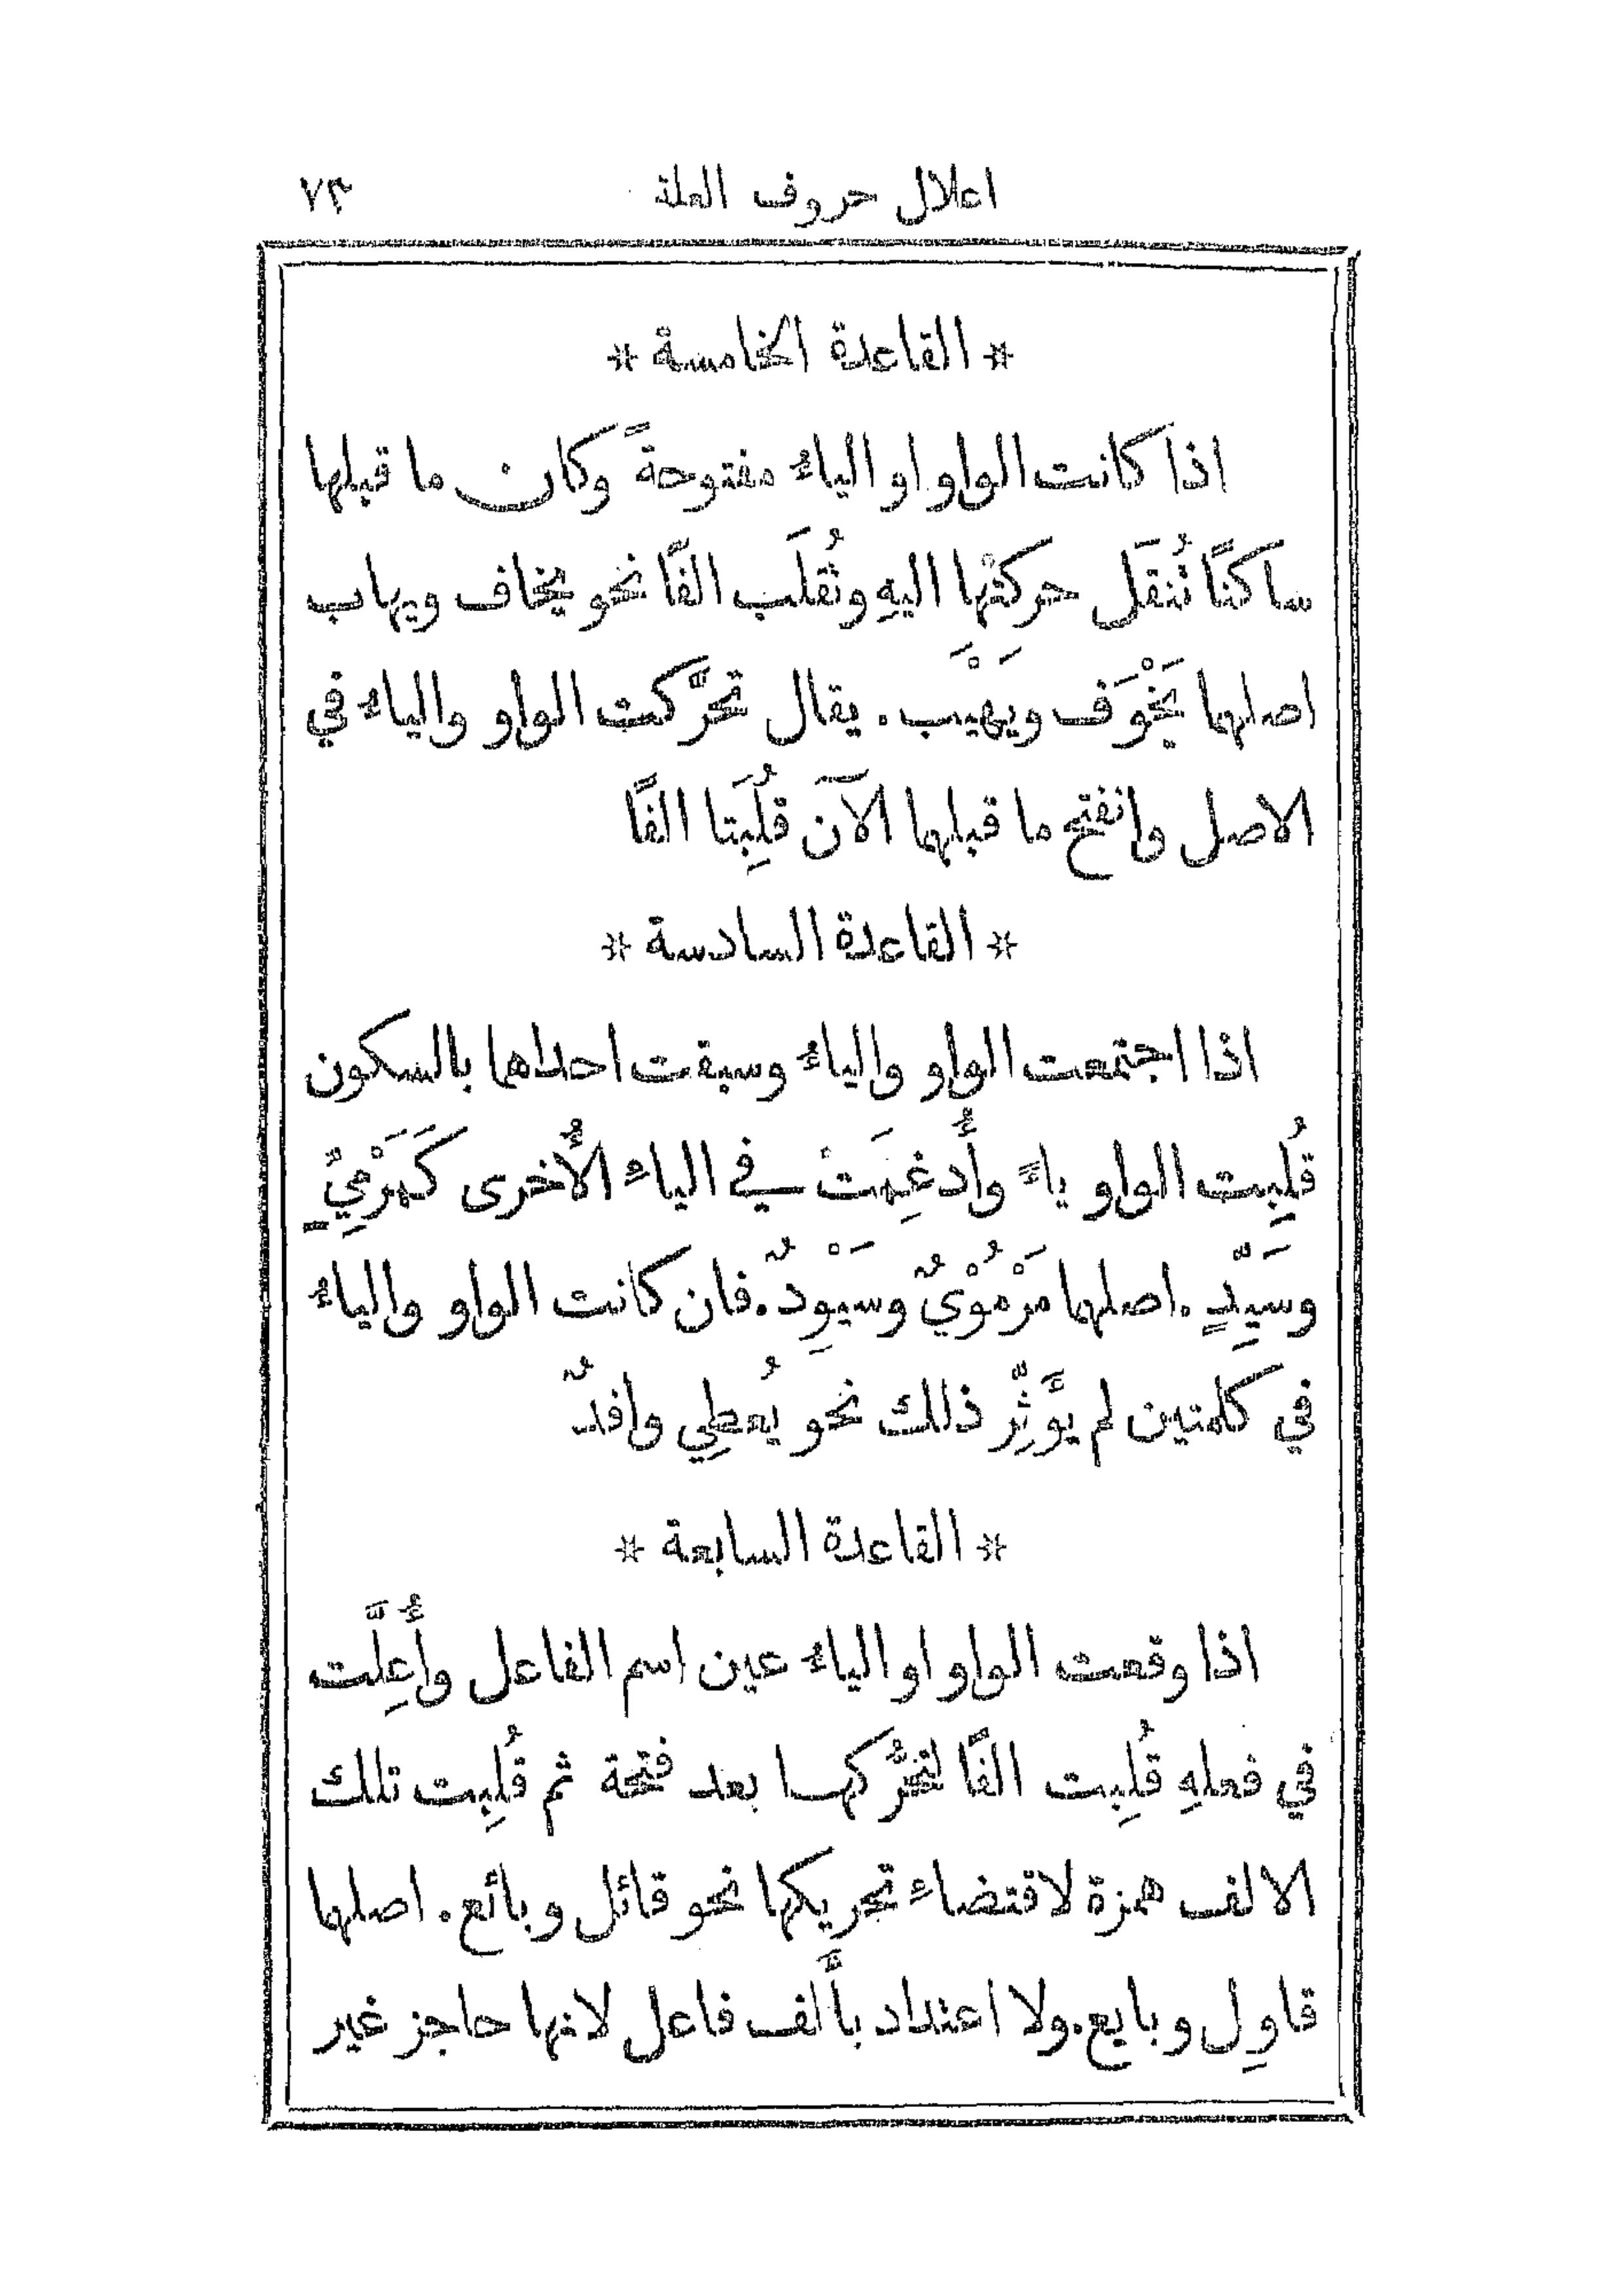 اعلال حروف العلة ٧٣
* القاعدة الخامسة *
اذا كانت الواو او الياءُ مفتوحةً وكان ما قبلها
ساكنًا تُنقَل حركتُها اليهِ وتُقلَب الفًا نحو يخاف ويهاب
اصلهما يَخْوَف ويهْيَب. يقال تحرَّكت الواو والياءُ في
الاصل وانفتح ما قبلهما الآن قُلِبَتا الفًا
* القاعدة السادسة *
اذا اجتمعت الواو والياءُ وسبقت احداهما بالسكون
قُلِبت الواو ياءً وأُدغِمَتْ في الياء الأُخرى كَمَرْمِيٍّ
وسَيِّدٍ. اصلهما مَرْمُوْيٌ وسَيْوِدٌ. فان كانت الواو والياءُ
في كلمتين لم يؤَثِّر ذلك نحو يُعطِي وافدٌ
* القاعدة السابعة *
اذا وقعت الواو او الياءُ عين اسم الفاعل وأُعِلَّت
في فعلهِ قُلِبت الفًا لتحرُّكها بعد فتحة ثم قُلِبت تلك
الالف همزة لاقتضاء تحريكها نحو قائل وبائع. اصلهما
قاوِل وبايع. ولا اعتداد بأَلف فاعل لانها حاجز غير